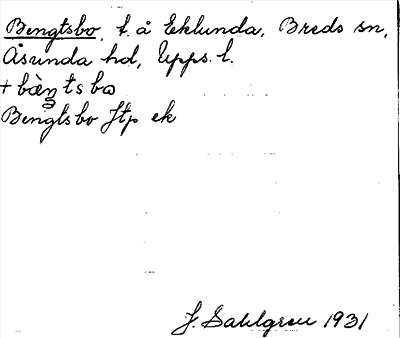 Bengtsbo, t. å Eklunda, Breds sn,
Åsunda hd, Upps. l.
+ bæ̀ŋtsbo
Bengtsbo Jtp ek
J. Sahlgren 1931